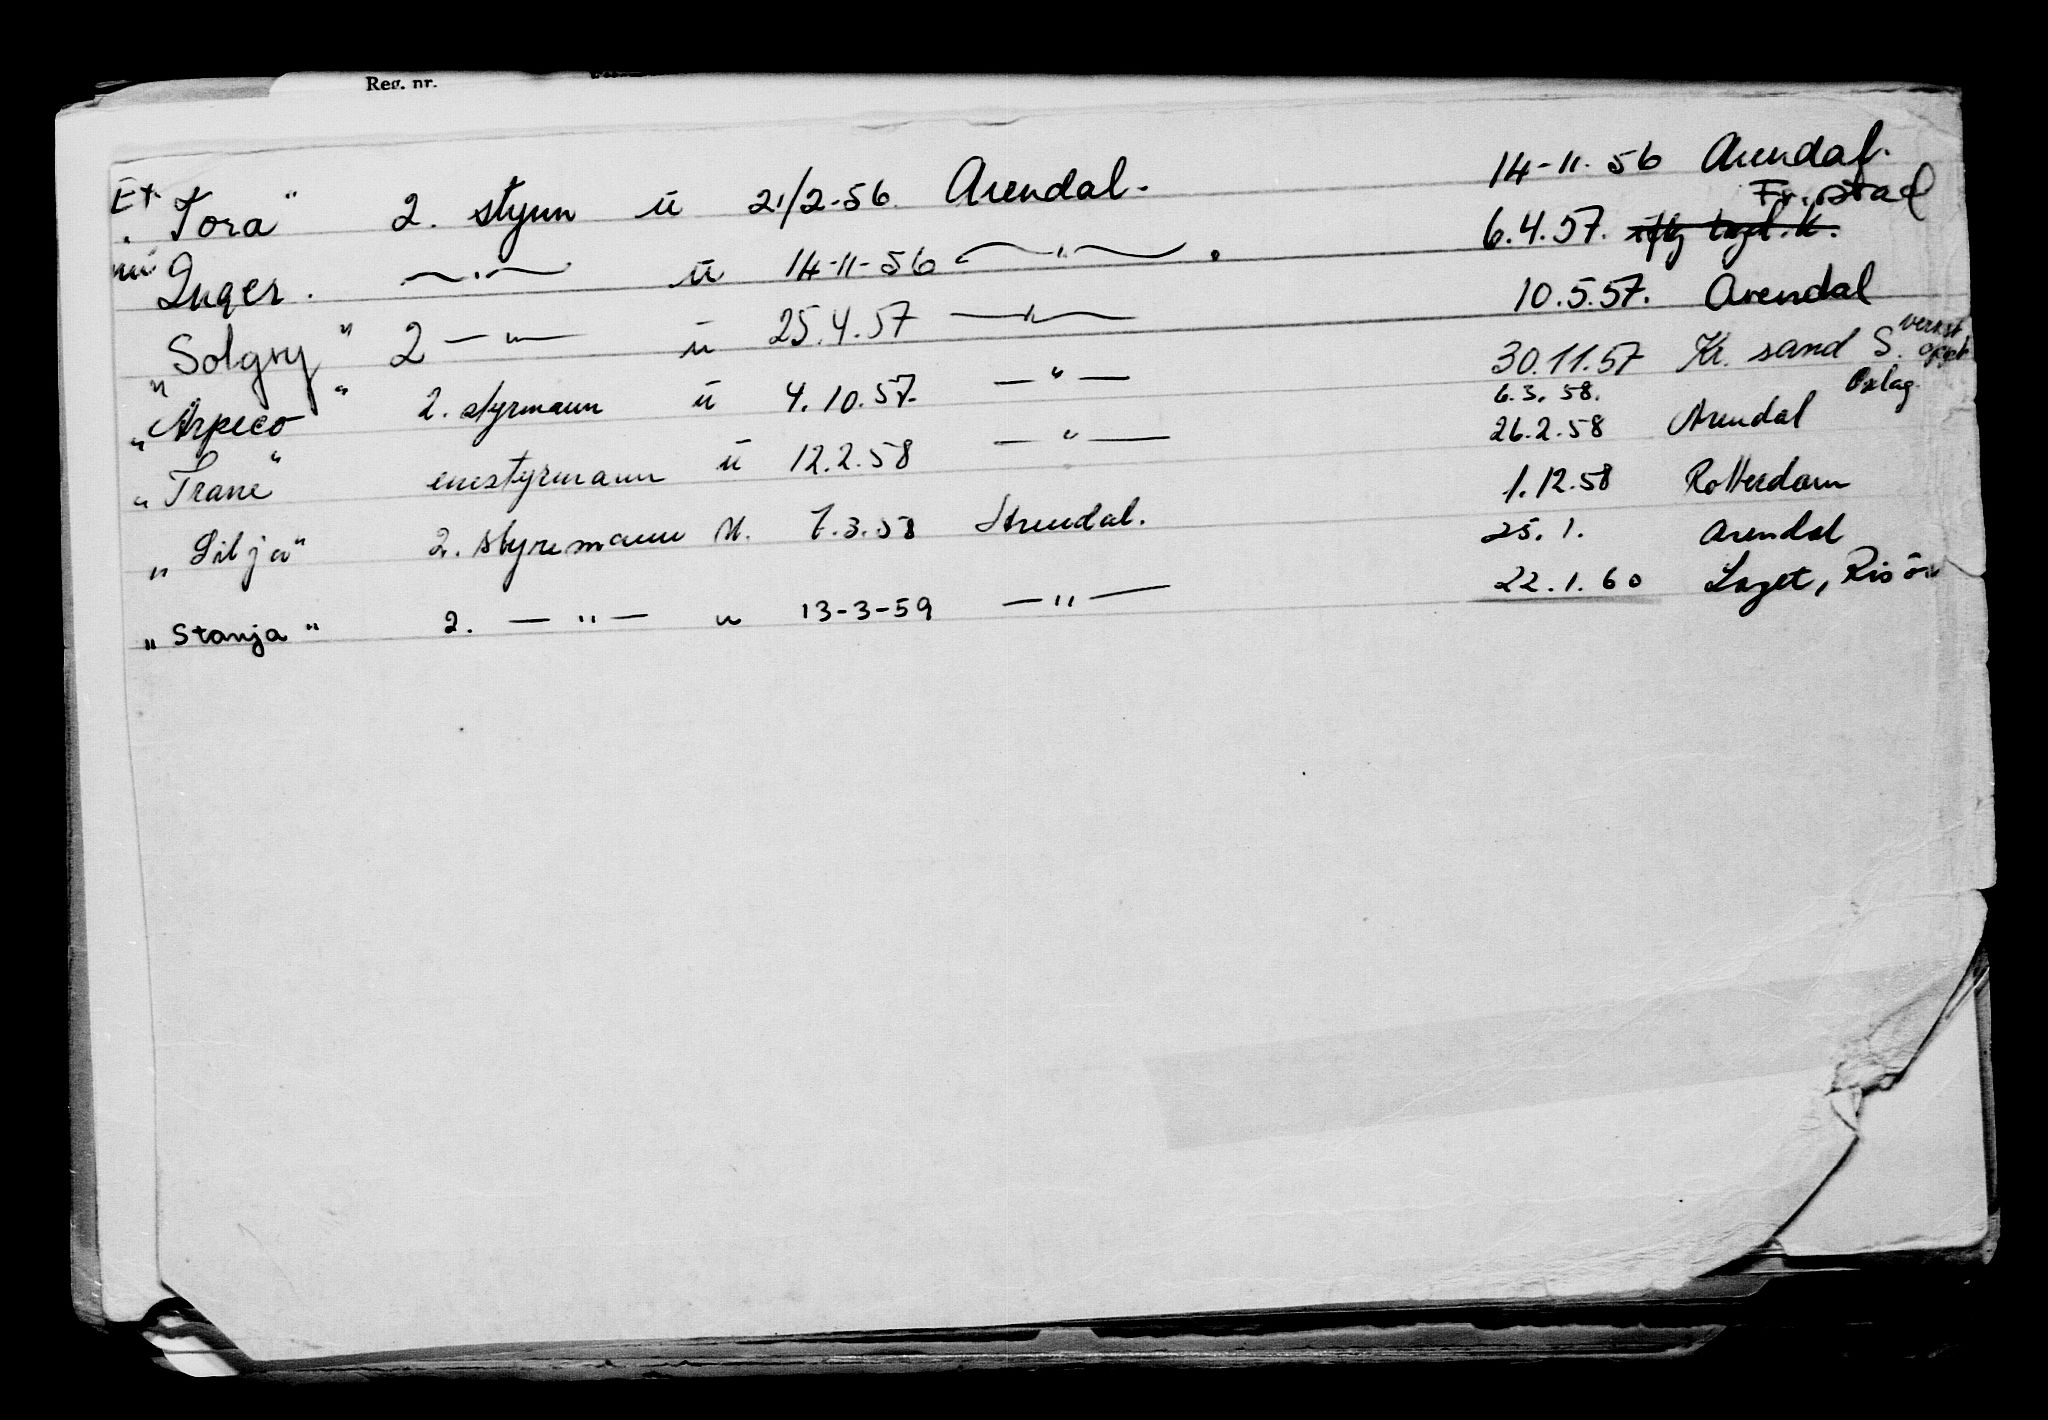 Reg. nr.
Et. "Tora" 2. styrm u 21/2-56 Arendal. 14-11-56 Arendal.
Fr.stad
mt Inger. —"— u 14-11-56 —"—. 6.4.57.
"Solgry" 2 —"— u 25.4.57 —"— 10.5.57. Arendal
"Arpeco" 2. styrmann u 4.10.57. —"— 30.11.57 Kr. sand S. verkst. opph
6.3.58. Oslag.
"Trane" enestyrmann u 12.2.58 —"— 26.2.58 Arendal
"Silja" 2. styremann u. 7.3.58 Arendal. 1.12.58 Rotterdam
25.1. Arendal
"Stanja" 2. —"— u 13-3-59 —"— 22.1.60 Laget, Risör